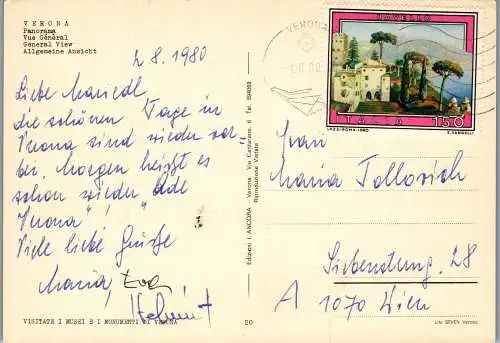 VERONA
Panorama
Vue Général
General View
Allgemeine Ansicht
2.8.1980
Liebe Mariedl
die schönen Tage in
Verona sind wieder vor
bei. Morgen heißt es
schon wieder "Ade
Verona"!
Viele liebe Grüße
Maria, Eva
Helmut
VISITATE I MUSEI E I MONUMENTI DI VERONA
20
Edizioni I ANCORA - Verona Via Cantarane, 6 Tel. 594083
Riproduzione Vietata
VERONA
RAVELLO
ITALIA 150
I.P.Z.S. ROMA 1980
Frau
Maria Tollovich
Siebensterng. 28
A 1070 Wien
Lito SEVEN Verona